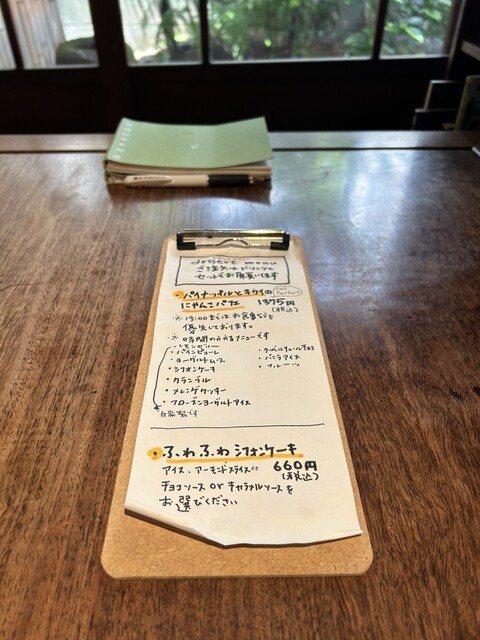 dessert menu
ご注文はドリンクと
セットでお願いします
パイナップルとキウイの
にゃんこパフェ 1375円
(税込)
※13:00まではお食事などを
優先しております。
※お時間のかかるメニューです
・レモンゼリー
・パインピューレ
・ヨーグルトムース
・シフォンケーキ
・クランブル
・メレンゲクッキー
・フローズンヨーグルトアイス
自家製です
・クーベルチュールチョコ
・バニラアイス
・フルーツ
ふわふわシフォンケーキ
アイス、アーモンドスライス付 660円
(税込)
チョコソース or キャラメルソースを
お選びください